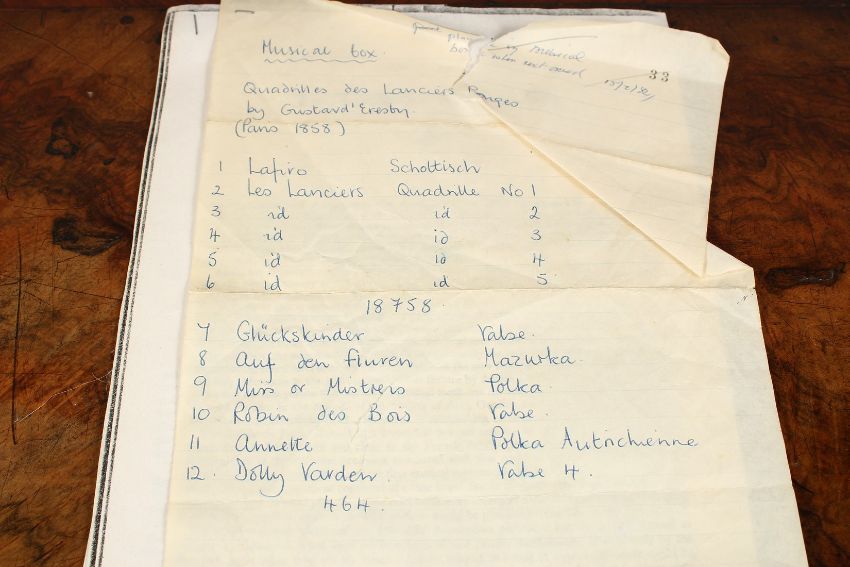 Musical box.
musical
15/2/84
33
Quadrilles des Lanciers Rouges
by Gustard'Eresby.
(Paris 1858)
1 Lafiro Schottisch
2 Les Lanciers Quadrille No 1
3 id id 2
4 id id 3
5 id id 4
6 id id 5
18758.
7 Glückskinder Valse.
8 Auf den Fluren Mazurka.
9 Miss or Mistress Polka.
10 Robin des Bois Valse.
11 Annette Polka Autrichienne
12. Dolly Varden. Valse 4.
464.